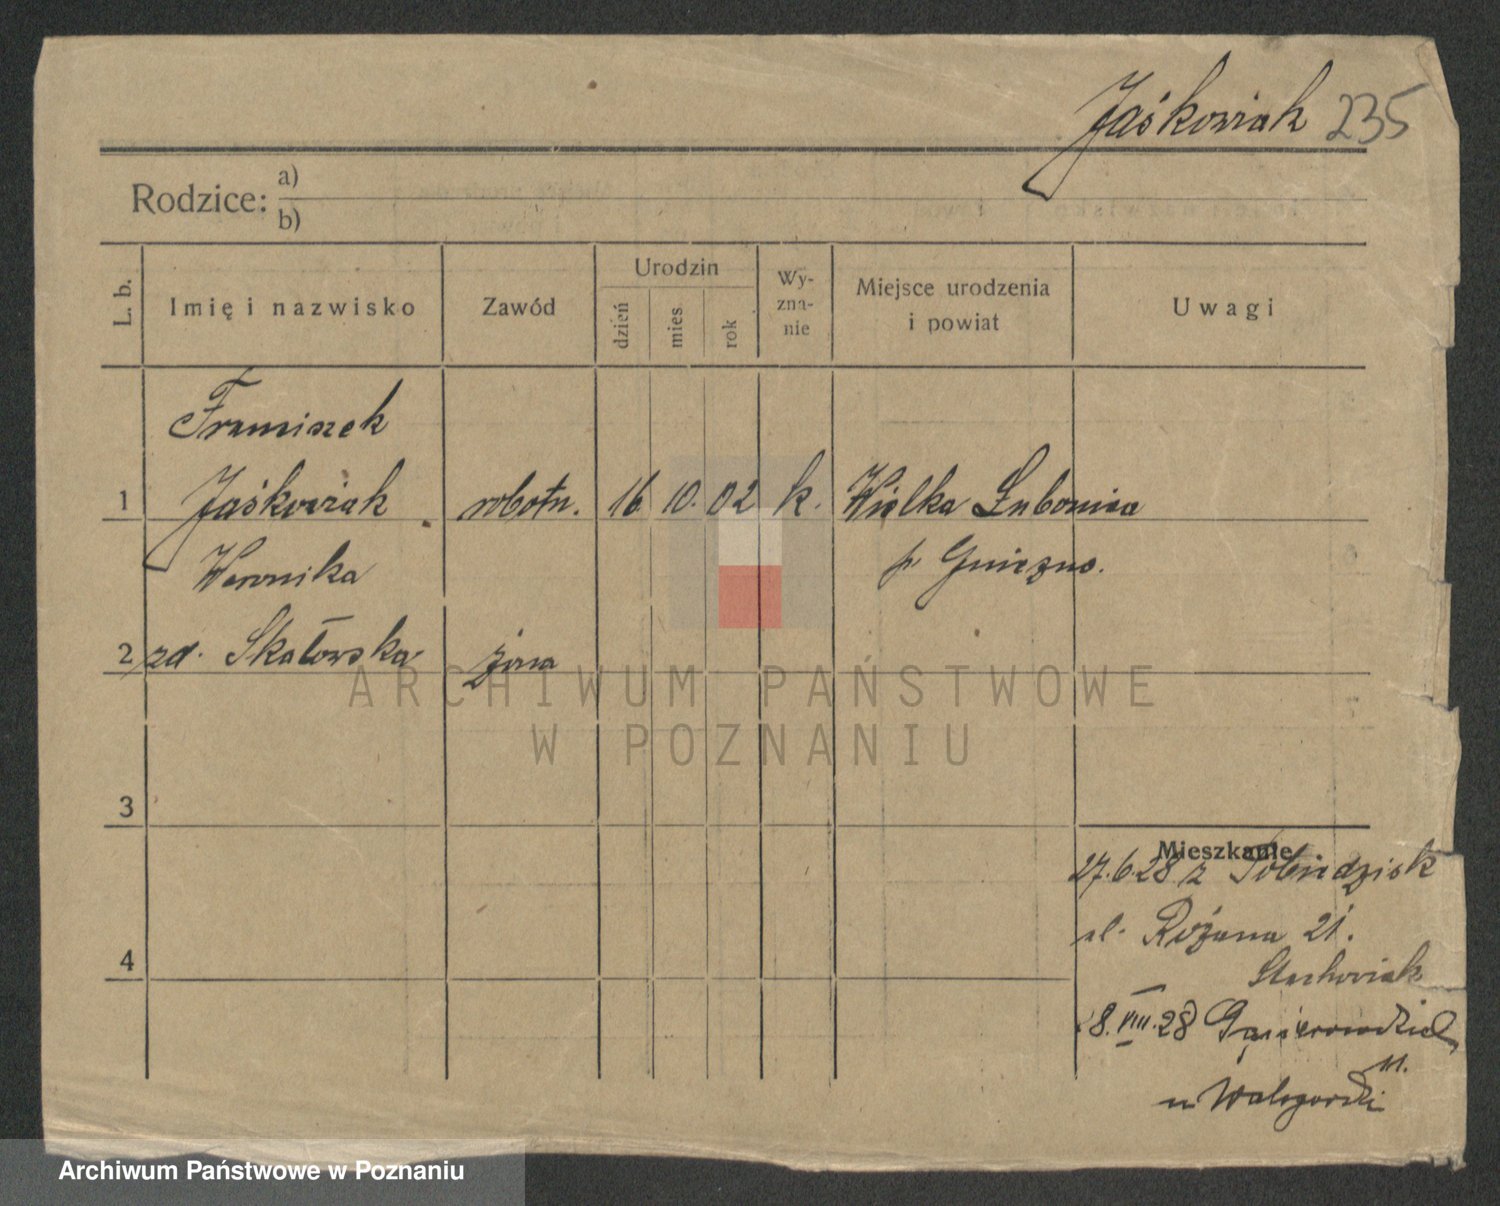 Jaśkowiak 235
Rodzice: a)
b)
L. b.
Imię i nazwisko
Zawód
Urodzin
dzień
mies.
rok
Wy-
zna-
nie
Miejsce urodzenia
i powiat
Uwagi
Franciszek
1 Jaśkowiak robotn. 16 10. 02 k. Wielka Łubowica
p. Gniezno.
Weronika
2 zd. Skatowska żona
3
4
Mieszkanie
27.6.28 z Pobiedzisk
ul. Różana 21.
Stachowiak
8.VIII.28
ARCHIWUM PAŃSTWOWE
W POZNANIU
Archiwum Państwowe w Poznaniu